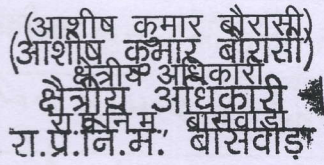 (आशीष कुमार बौरासी)
(आशीष कुमार बौरासी)
क्षेत्रीय अधिकारी
क्षेत्रीय अधिकारी
रा.प्र.नि.म. बांसवाड़ा
रा.प्र.नि.म. बांसवाड़ा